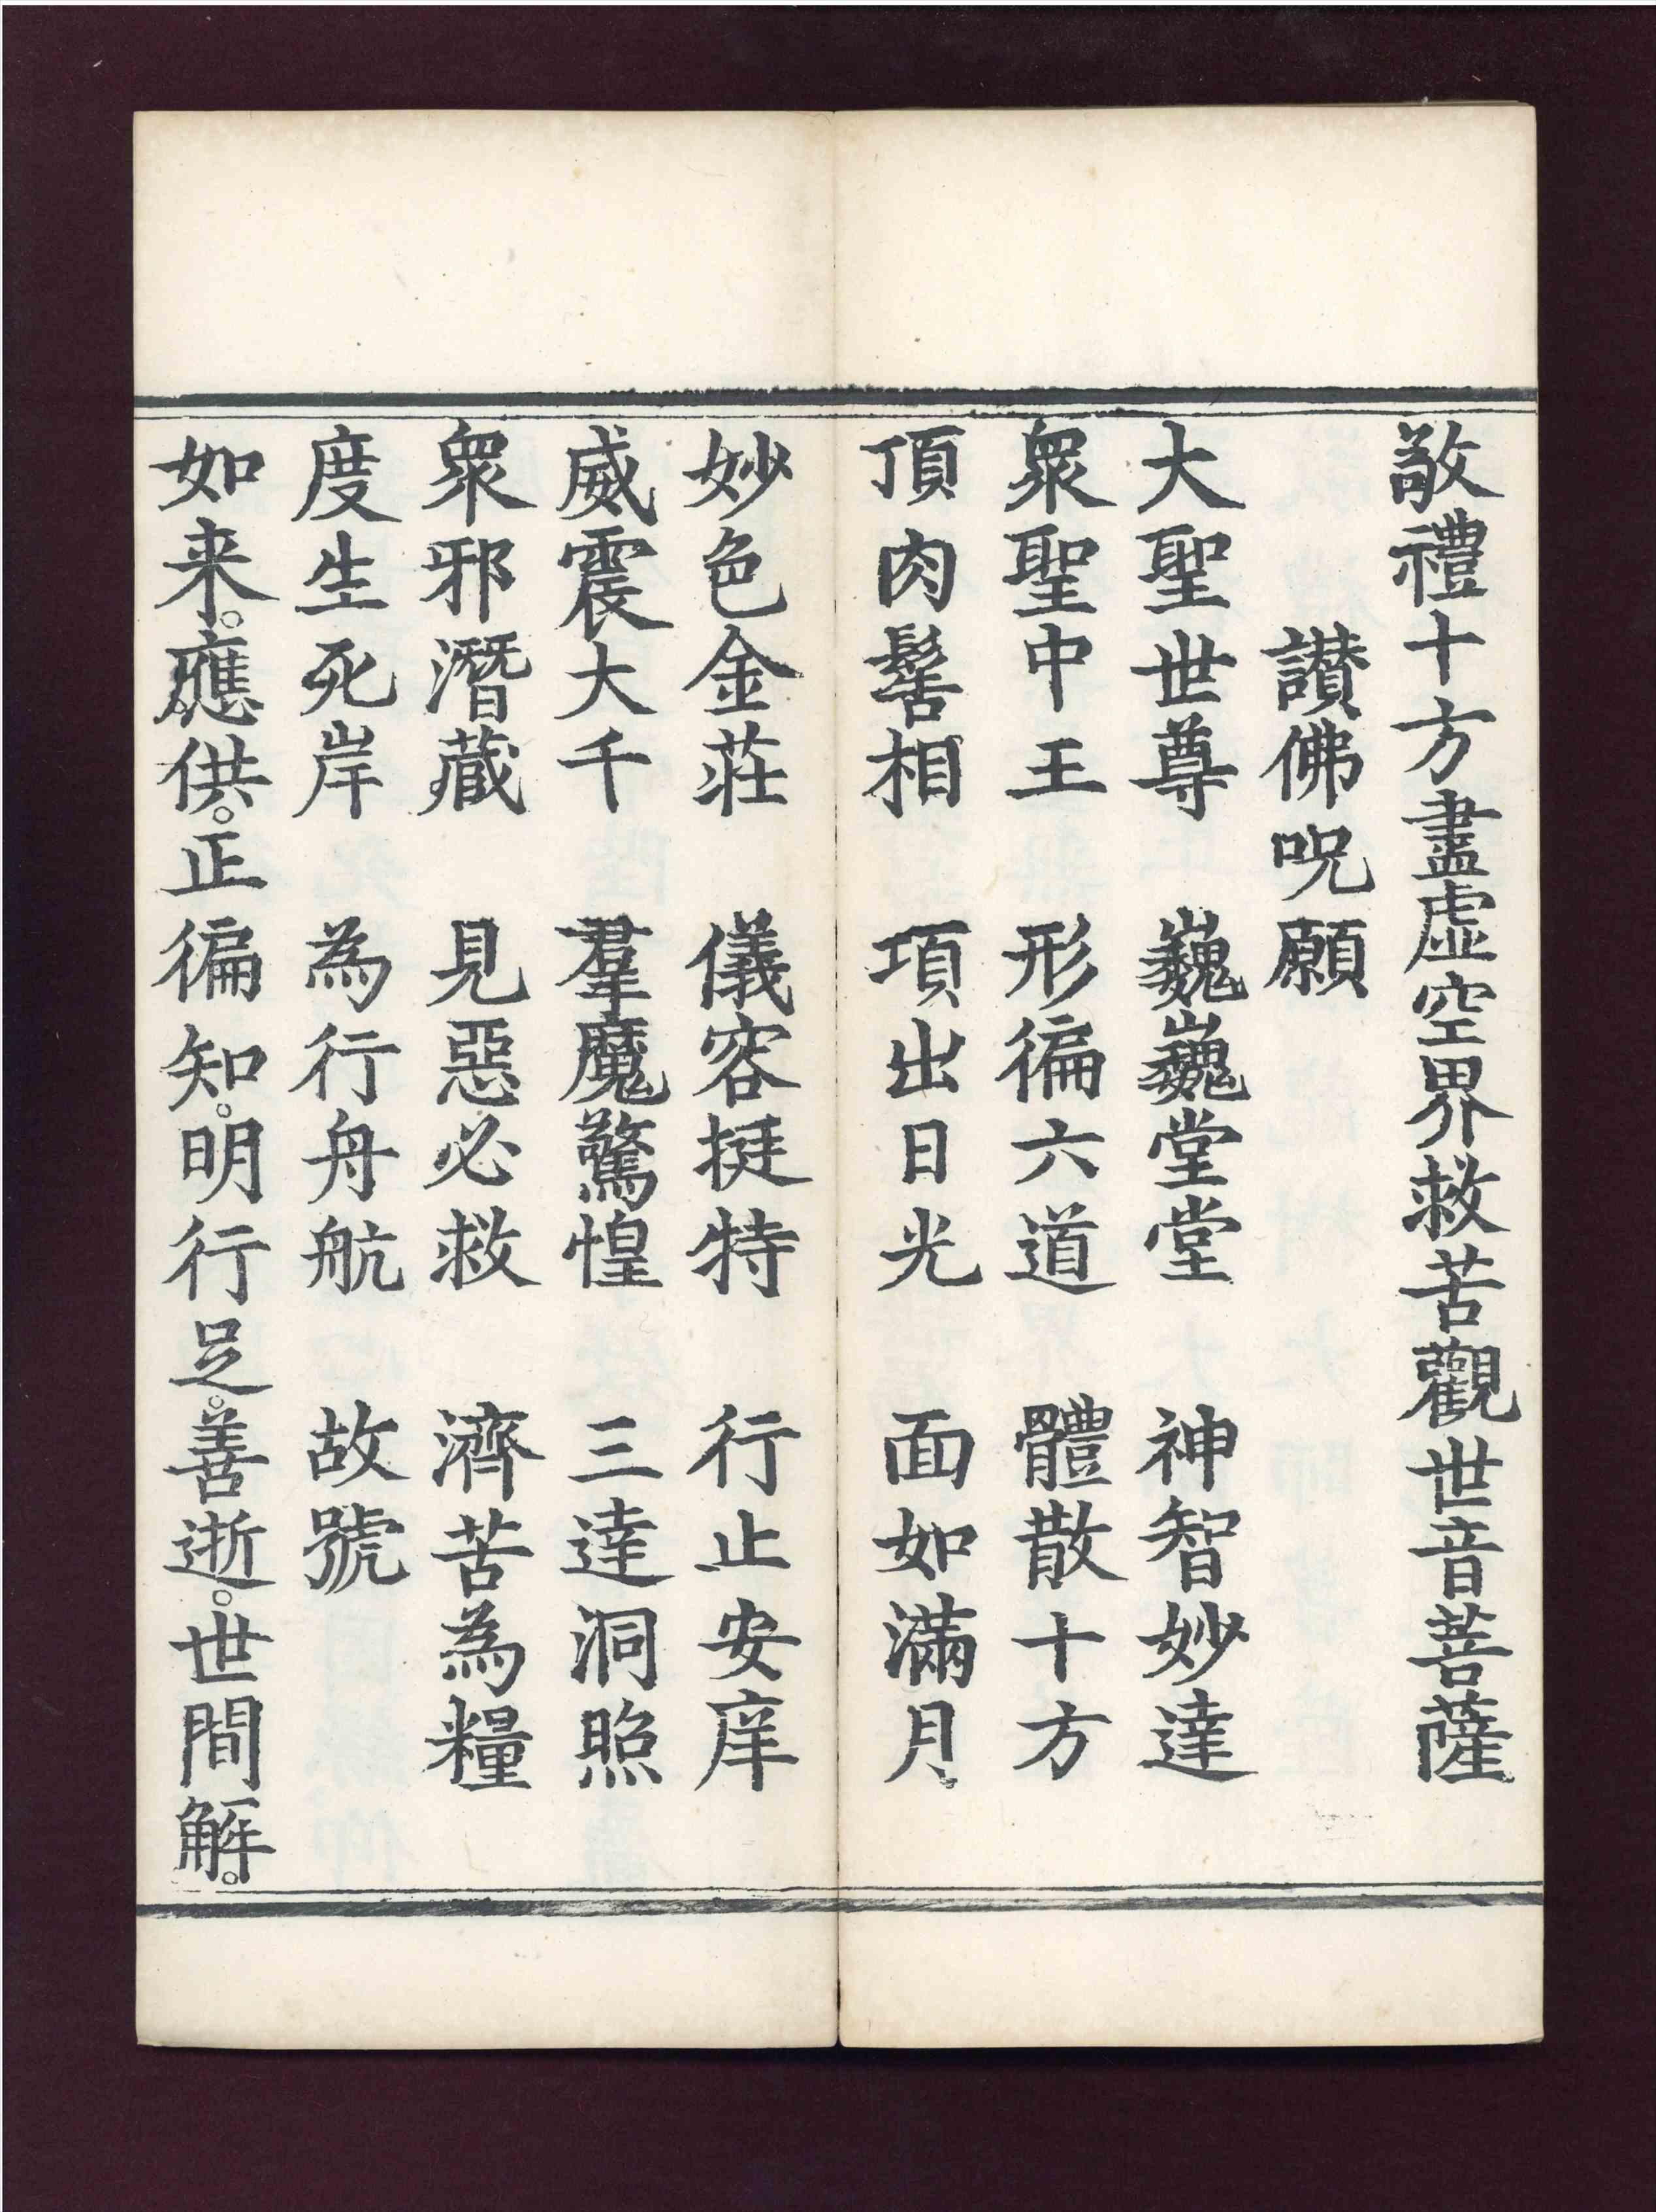 敬禮十方盡虛空界救苦觀世音菩薩
讃佛呪願
大聖世尊　巍巍堂堂　神智妙達
衆聖中王　形徧六道　體散十方
頂肉髻相　項出日光　面如滿月
妙色金莊　儀容挺特　行止安庠
威震大千　羣魔驚惶　三達洞照
衆邪潛藏　見惡必救　濟苦為糧
度生死岸　為行舟航　故號
如来。應供。正徧知。明行足。善逝。世間解。